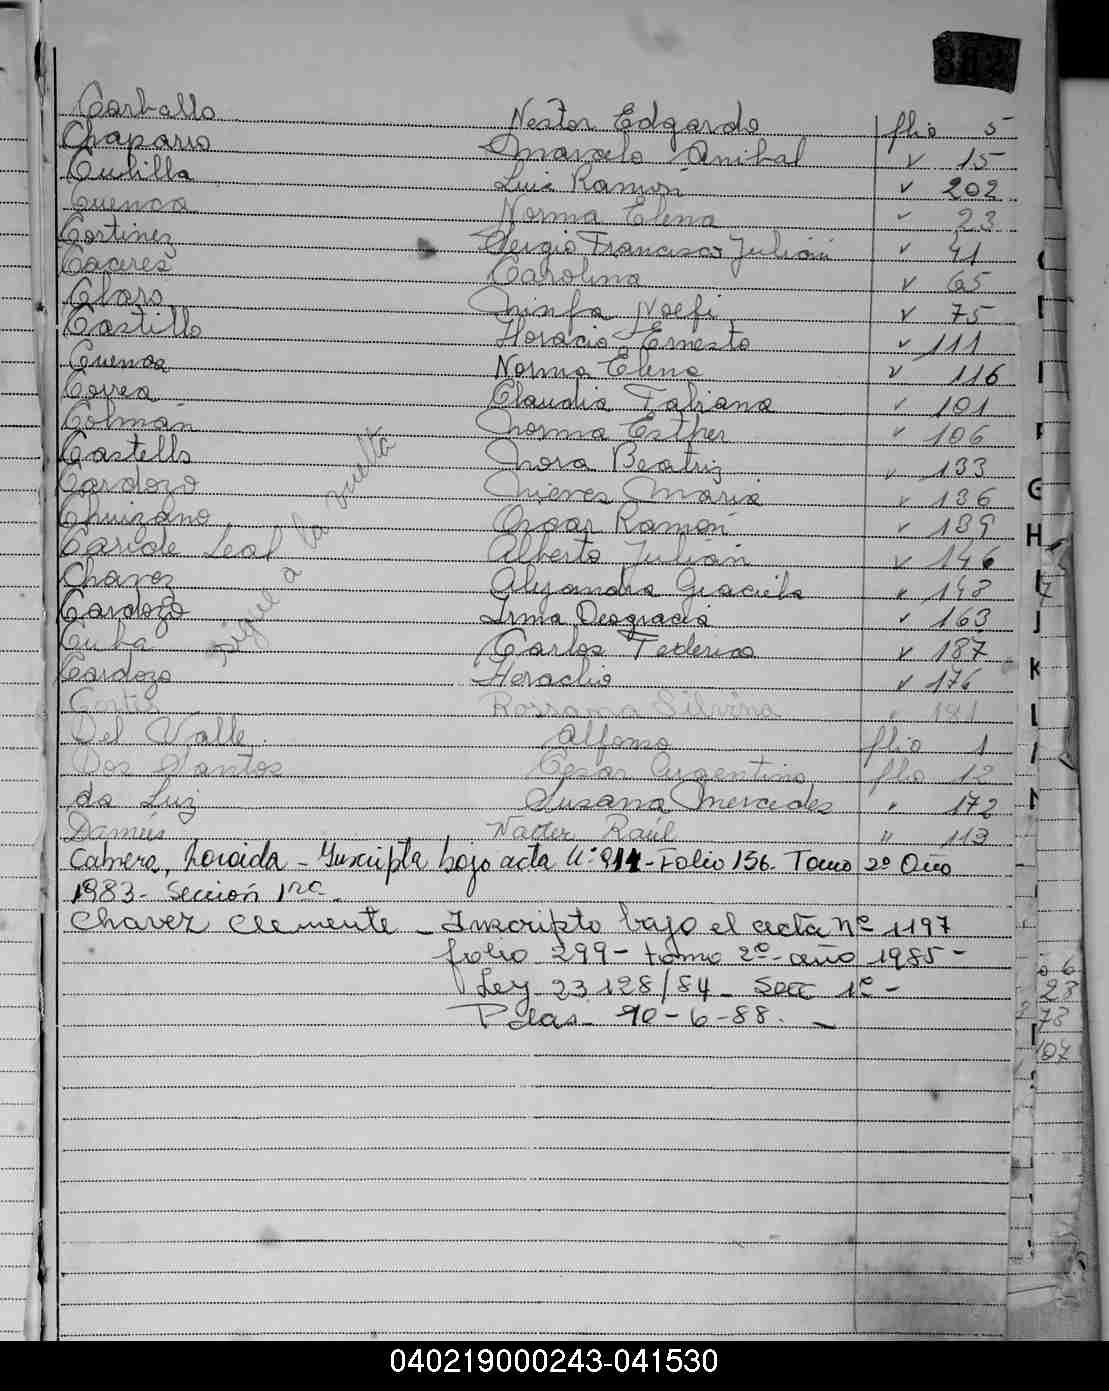 302
Carballo Nestor Edgardo flio 5
Chaparro Marcelo Anibal v 15
Cubilla Luis Ramón v 202
Cuenca Norma Elena v 23
Cortinez Sergio Francisco Julián v 41
Caceres Carolina v 65
Claro Ninfa Noefi v 75
Castillo Horacio Ernesto v 111
Cuenca Norma Elena v 116
Correa Claudia Fabiana v 101
Colmán Norma Esther v 106
Castells Nora Beatriz v 133
Cardozo Nieves Maria v 136
Oscar Ramón v 139
Caride Leal Alberto Julián v 146
Chavez Alejandra Graciela v 148
Cardozo Irma Deogracia v 163
Cuba Carlos Federico v 187
Cardozo Heraclio v 176
sigue a la vuelta
Rossana Silvina 181
Del Valle Alfonso flio 1
Dos Santos Cesar Argentino flio 12
da Luz Susana Mercedes " 172
Walter Raúl " 113
Cabrera, - Inscripta bajo acta Nº 914 - Folio 156. Tomo 2º Año
1983 - Sección 1ra.
Chavez Clemente - Inscripto bajo el acta Nº 1197
folio 299 - tomo 2º - año 1985 -
Ley 23128/84 - Secc 1ª -
Pdas - 10-6-88. -
G
H
I
J
K
L
040219000243-041530